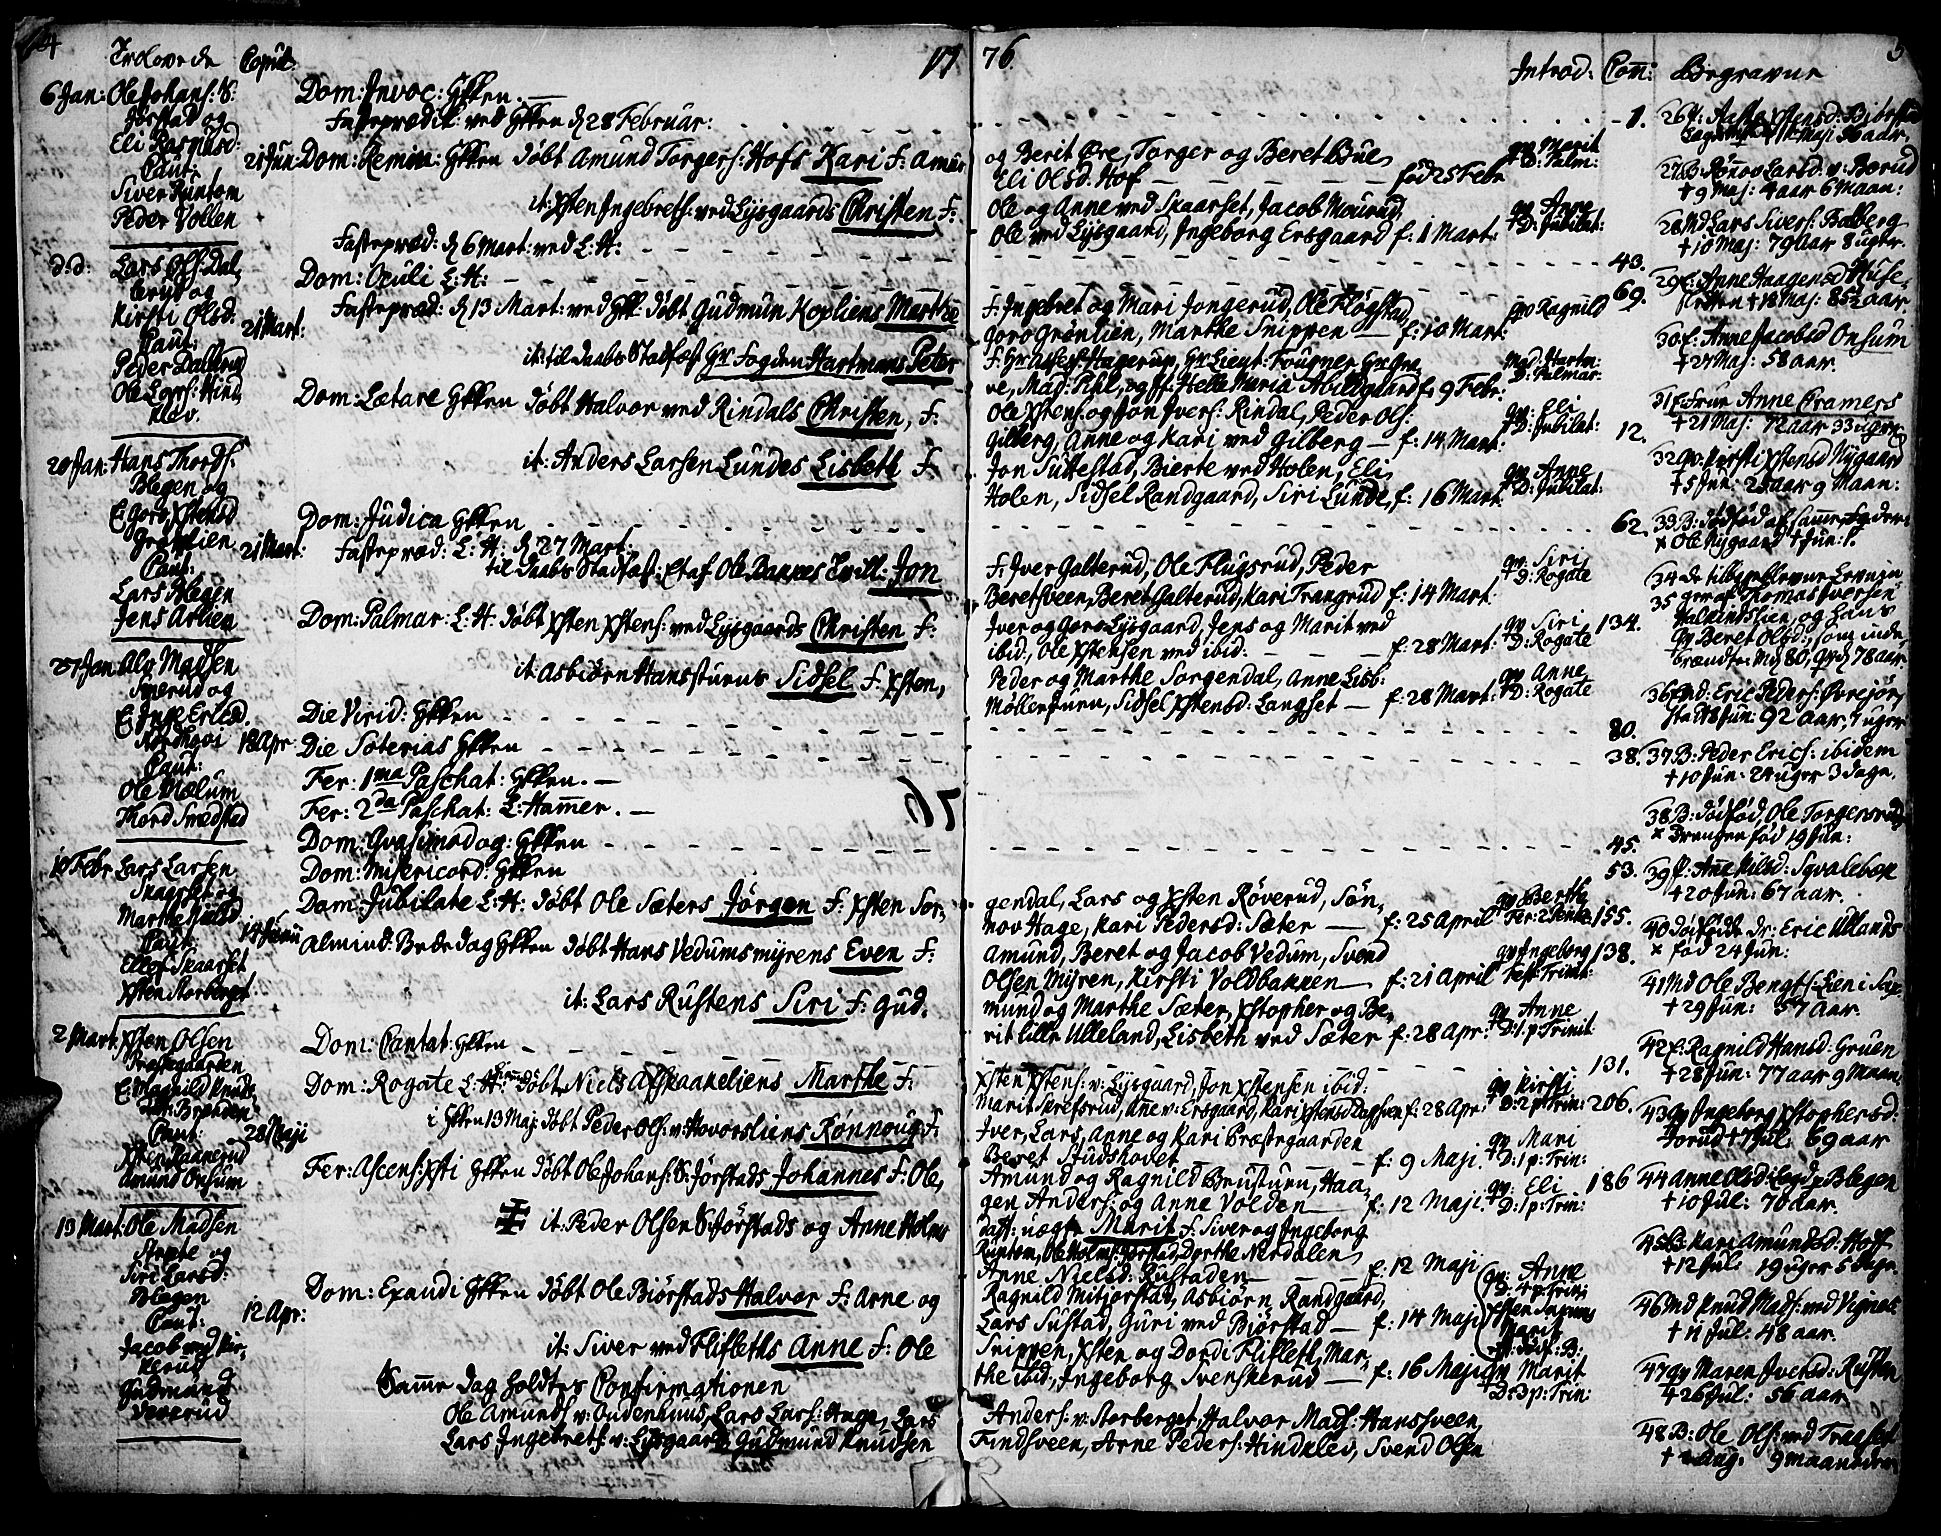 4
Trolovede Copul:
17
6 Jan: Ole Johans: S:
Jørstad og
Eli Rasmusd:
Caut:
Siver Runtom
Peder Vollen
21 Jun:
d:d: Lars Ols: Dal,
berg og
Kirsti Olsd:
Caut:
Peder Dalberg
Ole Lars: Hind,
klev.
21 Mart:
20 Jan: Hans Thords:
Blegen og
E: Goro Xstensd
Grønlien
Caut:
Lars Blegen
Jens Arlien
21 Mart:
27 Jan: Madsen
Smerud og
Caut:
Ole Mælum
Thord Smedstad
18 Apr
10 Febr Lars Larsen
Skaarset og
Marthe
Caut:
Ellef Skaarset
Xsten Storberget
14 Junii
2 Mart: Xsten Olsen
Præstegaarden
E: Magnild Knuds,
datt: Brænden
Caut:
Xsten Kaanerud
Amund Onsum
28 Maji
13 Mart: Ole Madsen
og
Siri Larsd:
Blegen
Caut:
Jacob ved Kir,
kerud
Gudmund
12 Apr:
Dom: Invoc: Gkken. —
Fasteprædik: ved Gkken d 28 Februar:
Dom: Remin: Gkken døbt Amund Torgers: Hofs Kari F: Amun
it: Xsten Ingebrets: ved Lysgaards Christen F:
Fastepræd: d 6 Mart: ved L:H:
Dom: Oculi L:H:
Fastepræd: d 13 Mart: ved Gkk: døbt Gudmun Kopliens Marthe
it: til daabs Stadfæst Hr Fogden Hartmans Peter
Dom: Lætare Gkken døbt Halvor ved Rindals Christen, F:
it: Anders Larsen Lundes Lisbeth F:
Dom: Judica Gkken
Fastepræd: L:H: d 27 Mart:
til daabs Stadfæst: Ole Bakkes Jon
Dom: Palmar: L:H: døbt Xsten Xstens: ved Lysgaards Christen F:
it: Asbiørn Hansstuens Sidsel F: Xsten,
Die Virid: Gkken
Die Soterias Gkken
Fer: 1ma Paschat: Gkken. —
Fer: 2da Paschat: L: Hamer. —
Dom: Qvasimodog: Gkken
Dom: Misericord: Gkken
Dom: Jubilate L:H: døbt Ole Sæters Jørgen F: Xsten Sor,
Almind: Bededag Gkken døbt Hans Vedumsmyrens Even F:
it: Lars Rustens Siri F: Gud,
Dom: Cantat: Gkken
Dom: Rogate L:H: døbt Niels Afskaakeliens Marthe F:
i Gkken 13 Maj: døbt Peder Ols: v: Hovorsliens Rønnoug F:
Fer: Ascens: Xsti Gkken døbt Ole Johans: S: Jørstads Johannes F: Ole,
it: Peder Olsen S: Jørstads og Anne Holms
Dom: Exaudi Gkken døbt Ole Biørstads Halvor F: Arne og
it: Siver ved Flifleths Anne F: Ole
Samme dag holdtes Confirmationen
Ole Amunds v: Oudenhuus, Lars Lars: Hage, Lars
Lars Ingebrets v: Lysgaard, Gudmund Knudsen
76 Introd: Com: Begravne 5
1.
og Berit Øre, Torger og Beret Bue,
Eli Olsd: Hof — født 25 Febr qv Marit D: Palm:
Ole og Anne ved Skaarset, Jacob Mourud,
Ole ved Lysgaard, Ingeborg Ersgaard f: 1 Mart: qv Anne D: Jubilat:
43.
69.
F: Ingebret og Mari Jongerud, Ole Fløgstad,
Goro Grønlien, Marthe Snippen — f: 10 Mart: qv Ragnild
F: Hr Assess: Hagerup, Hr Lieut: Tourner,
ve, Mad: Pihl, og Helle Maria Abildgaard f: 9 Febr: Mad: Hartm: D: Palmar:
Ole Xstens: og Jon Ivers: Rindal, Peder Ols:
Gilberg, Anne og Kari ved Gilberg — f: 14 Mart: qv: Eli D: Jubilat: 12.
Jon Suttestad, Bierte ved Holen, Eli
Holen, Sidsel Randgaard, Siri Lunde, f: 16 Mart: qv Anne D: Jubilat:
62.
F: Iver Galterud, Ole Flugsrud, Peder
Beretsveen, Beret Galterud, Kari Trangrud f: 14 Mart: qv Siri D: Rogate
Iver og Goro Lysgaard, Jens og Marit ved
ibid:, Ole Xstensen ved ibid: — f: 28 Mart: qv Siri D: Rogate 134.
Peder og Marthe Sorgendal, Anne Lisb:
Møllerstuen, Sidsel Xstensd: Langset — f: 28 Mart: qv Anne D: Rogate
80.
38.
45.
53.
gendal, Lars og Xsten Røverud, Søn,
nov Hage, Kari Pedersd: Sæter — f: 25 April qv Berthe Fer: 2 Pentc: 155.
Amund, Beret og Jacob Vedum, Svend
Olsen Myren, Kirsti Voldbakken — f: 21 April qv Ingeborg Fest: Trinit: 138.
mund og Marthe Sæter, Xstopher og Be,
rit lille Ulleland, Lisbeth ved Sæter f: 28 Apr: qv Anne D: 1 p: Trinit:
131.
Xsten Xstens: v: Lysgaard, Jon Xstensen ibid:
Marit Skrefsrud, Ane v: Ersgaard, Kari Xstensd f: 28 Apr: qv Kirsti D: 2 p: Trin: 206.
Iver, Lars, Anne og Kari Præstegaarden
Beret Studshovet — f: 9 Maji qv Mari D: 1 p: Trin:
Amund og Ragnild Brustuen, Haa,
gen Anders: og Anne Volden — f: 12 Maji qv: Eli D: 1 p: Trin: 186
datt: uægte Marit F: Siver og Ingeborg
Runtom, Ole Holms: Jørstad, Dorthe Nordalen,
Anne Nielsd: Rustaden — f: 12 Maji qv: Anne D: 4 p: Trin:
Ragnild Mitjørstad, Asbiørn Randgaard,
Lars Sustad, Guri ved Biørstad — f: 14 Maji Marit
Snippen, Xsten og Dordi Flifleth, Mar,
the ibid:, Ingeborg Svenskerud — f: 16 Maji qv Marit D: 3 p: Trin:
Anders: v: Storberget, Halvor Mads: Hansveen,
Findsveen, Arne Peders: Hindklev, Svend Olsen
26 Xstensd:
Maji 36 aar,
27 B: Rønnov Larsd: v: Borud
† 9 Maj: 4 aar 6 Maan:
28 Md Lars Sivers: Balberg
† 10 Maj: 79 aar 8 uger.
29 E: Anne Haagensd
† 18 Maj: 85½ aar.
30 f: Anne Jacobsd Onsum
† 24 Maj: 58 aar.
31 f: Frue Anne Cramers
† 21 Maj: 72 aar 33 uger
32 qv: Kirsti Xstensd Nygaard
† 5 Jun: 28 aar 9 Maan:
33 B: dødfød af samme, Fader:
x Ole Nygaard 4 Jun: f.
34 de tilbageblevne Levnin
35 ger af Thomas Iversen
lien, og hans
qv Beret Olsd:, som inde,
brændte: Md 80, qv d 78 aar
36 Md: Eric Peders:
Jun: 92 aar, 7 uger
37 B: Peder Erics: ibidem
† 10 Jun: 24 uger 3 dage.
38 B: dødfød, Ole Torgersruds
x Drengen fød 19 Jun:
39 f: Ane Nilsd: Svaleboe
† 20 Jun: 67 aar.
40 dødfødt Dr: Eric Ullands
x fød 24 Jun:
41 Md Ole Bengts: Lien i
† 29 Jun: 57 aar.
42 E: Ragnild Hansd: Gruen
† 28 Jun: 77 aar 9 Maan,
43 qv Ingeborg Xstophersd:
Jorud † 7 Jul: 69 aar
44 Anne Olsd: Blegen
† 10 Jul: 70 aar.
45 B: Kari Amundsd: Hoff
† 12 Jul: 19 uger 5 dage.
46 Md Knud Mads: ved Vignes
† 11 Jul: 48 aar.
47 qv Maren Iversd: Rusten
† 26 Jul: 56 aar
48 B: Ole Ols: ved
† Aug: 9 maaneder